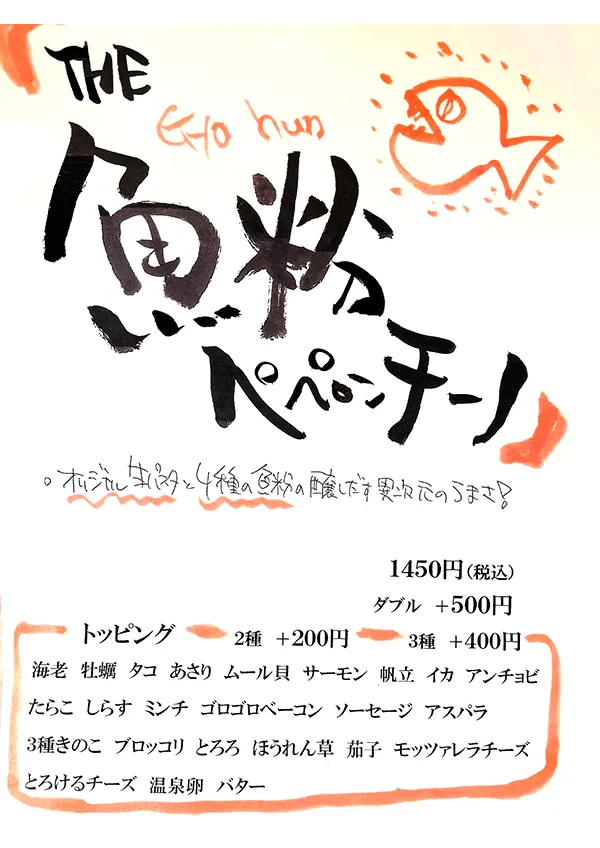 「THE
Gyo hun
魚粉
ペペロンチーノ」
。オリジナル生パスタと4種の魚粉の醸しだす異次元のうまさ!
1450円(税込)
ダブル +500円
トッピング 2種 +200円 3種 +400円
海老 牡蠣 タコ あさり ムール貝 サーモン 帆立 イカ アンチョビ
たらこ しらす ミンチ ゴロゴロベーコン ソーセージ アスパラ
3種きのこ ブロッコリ とろろ ほうれん草 茄子 モッツァレラチーズ
とろけるチーズ 温泉卵 バター